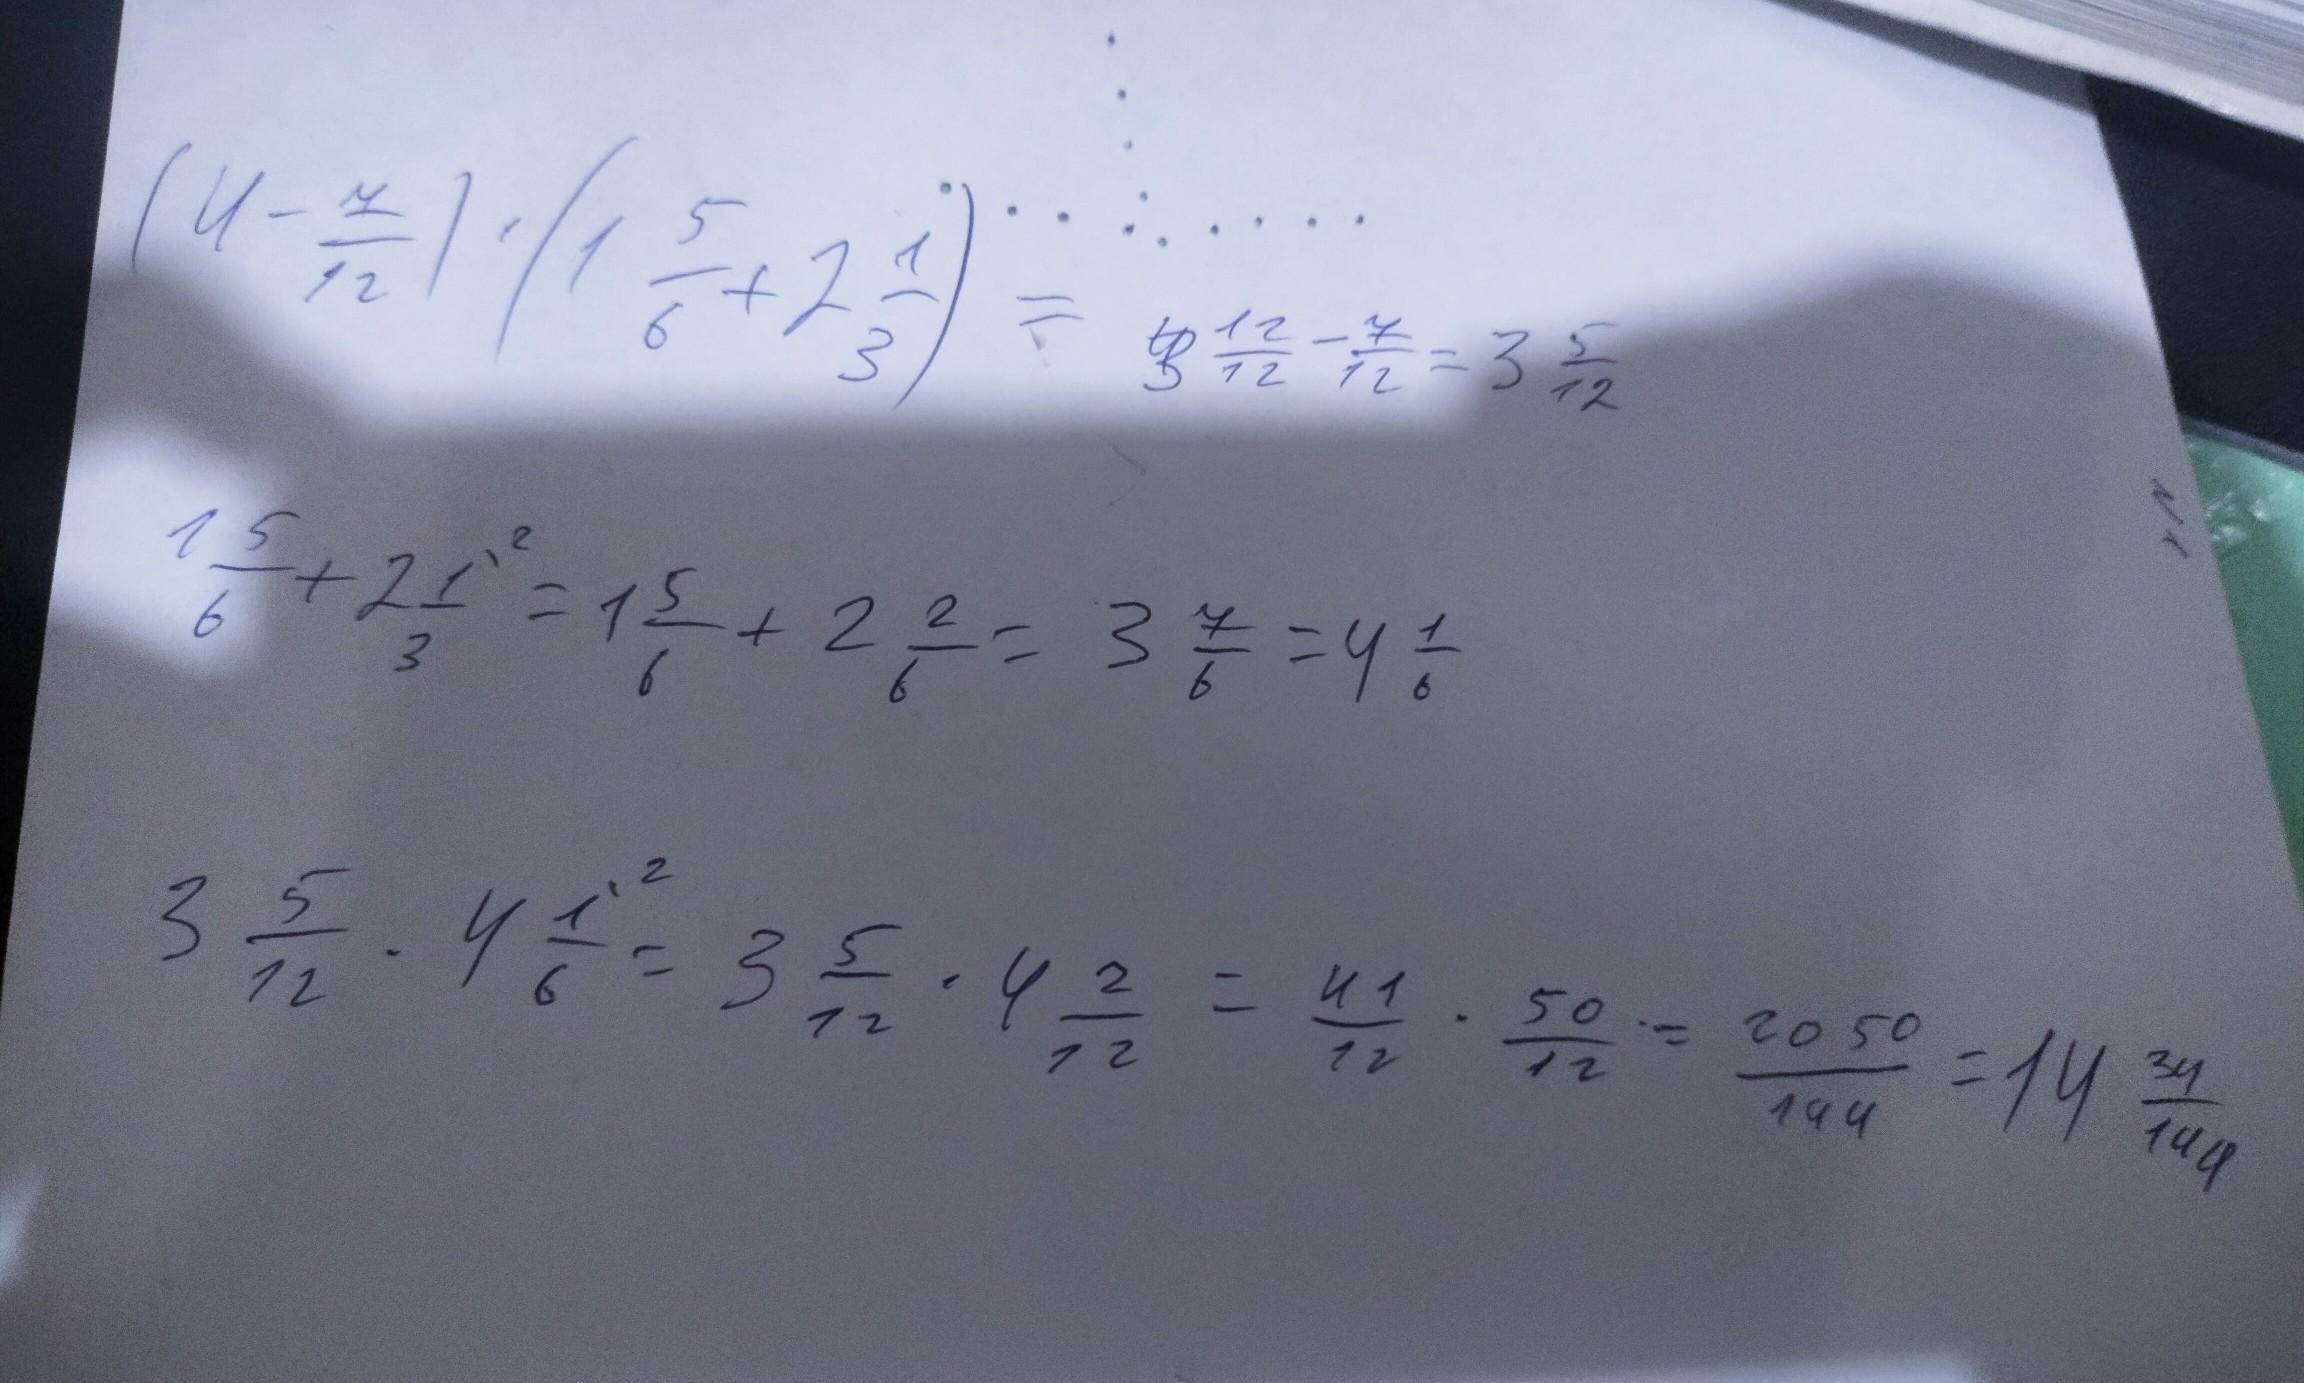 (4 - 7/12) · (1 5/6 + 2 1/3) = 3 12/12 - 7/12 = 3 5/12
1 5/6 + 2 1/3 ‵2 = 1 5/6 + 2 2/6 = 3 7/6 = 4 1/6
3 5/12 · 4 1/6 ‵2 = 3 5/12 · 4 2/12 = 41/12 · 50/12 = 2050/144 = 14 34/144